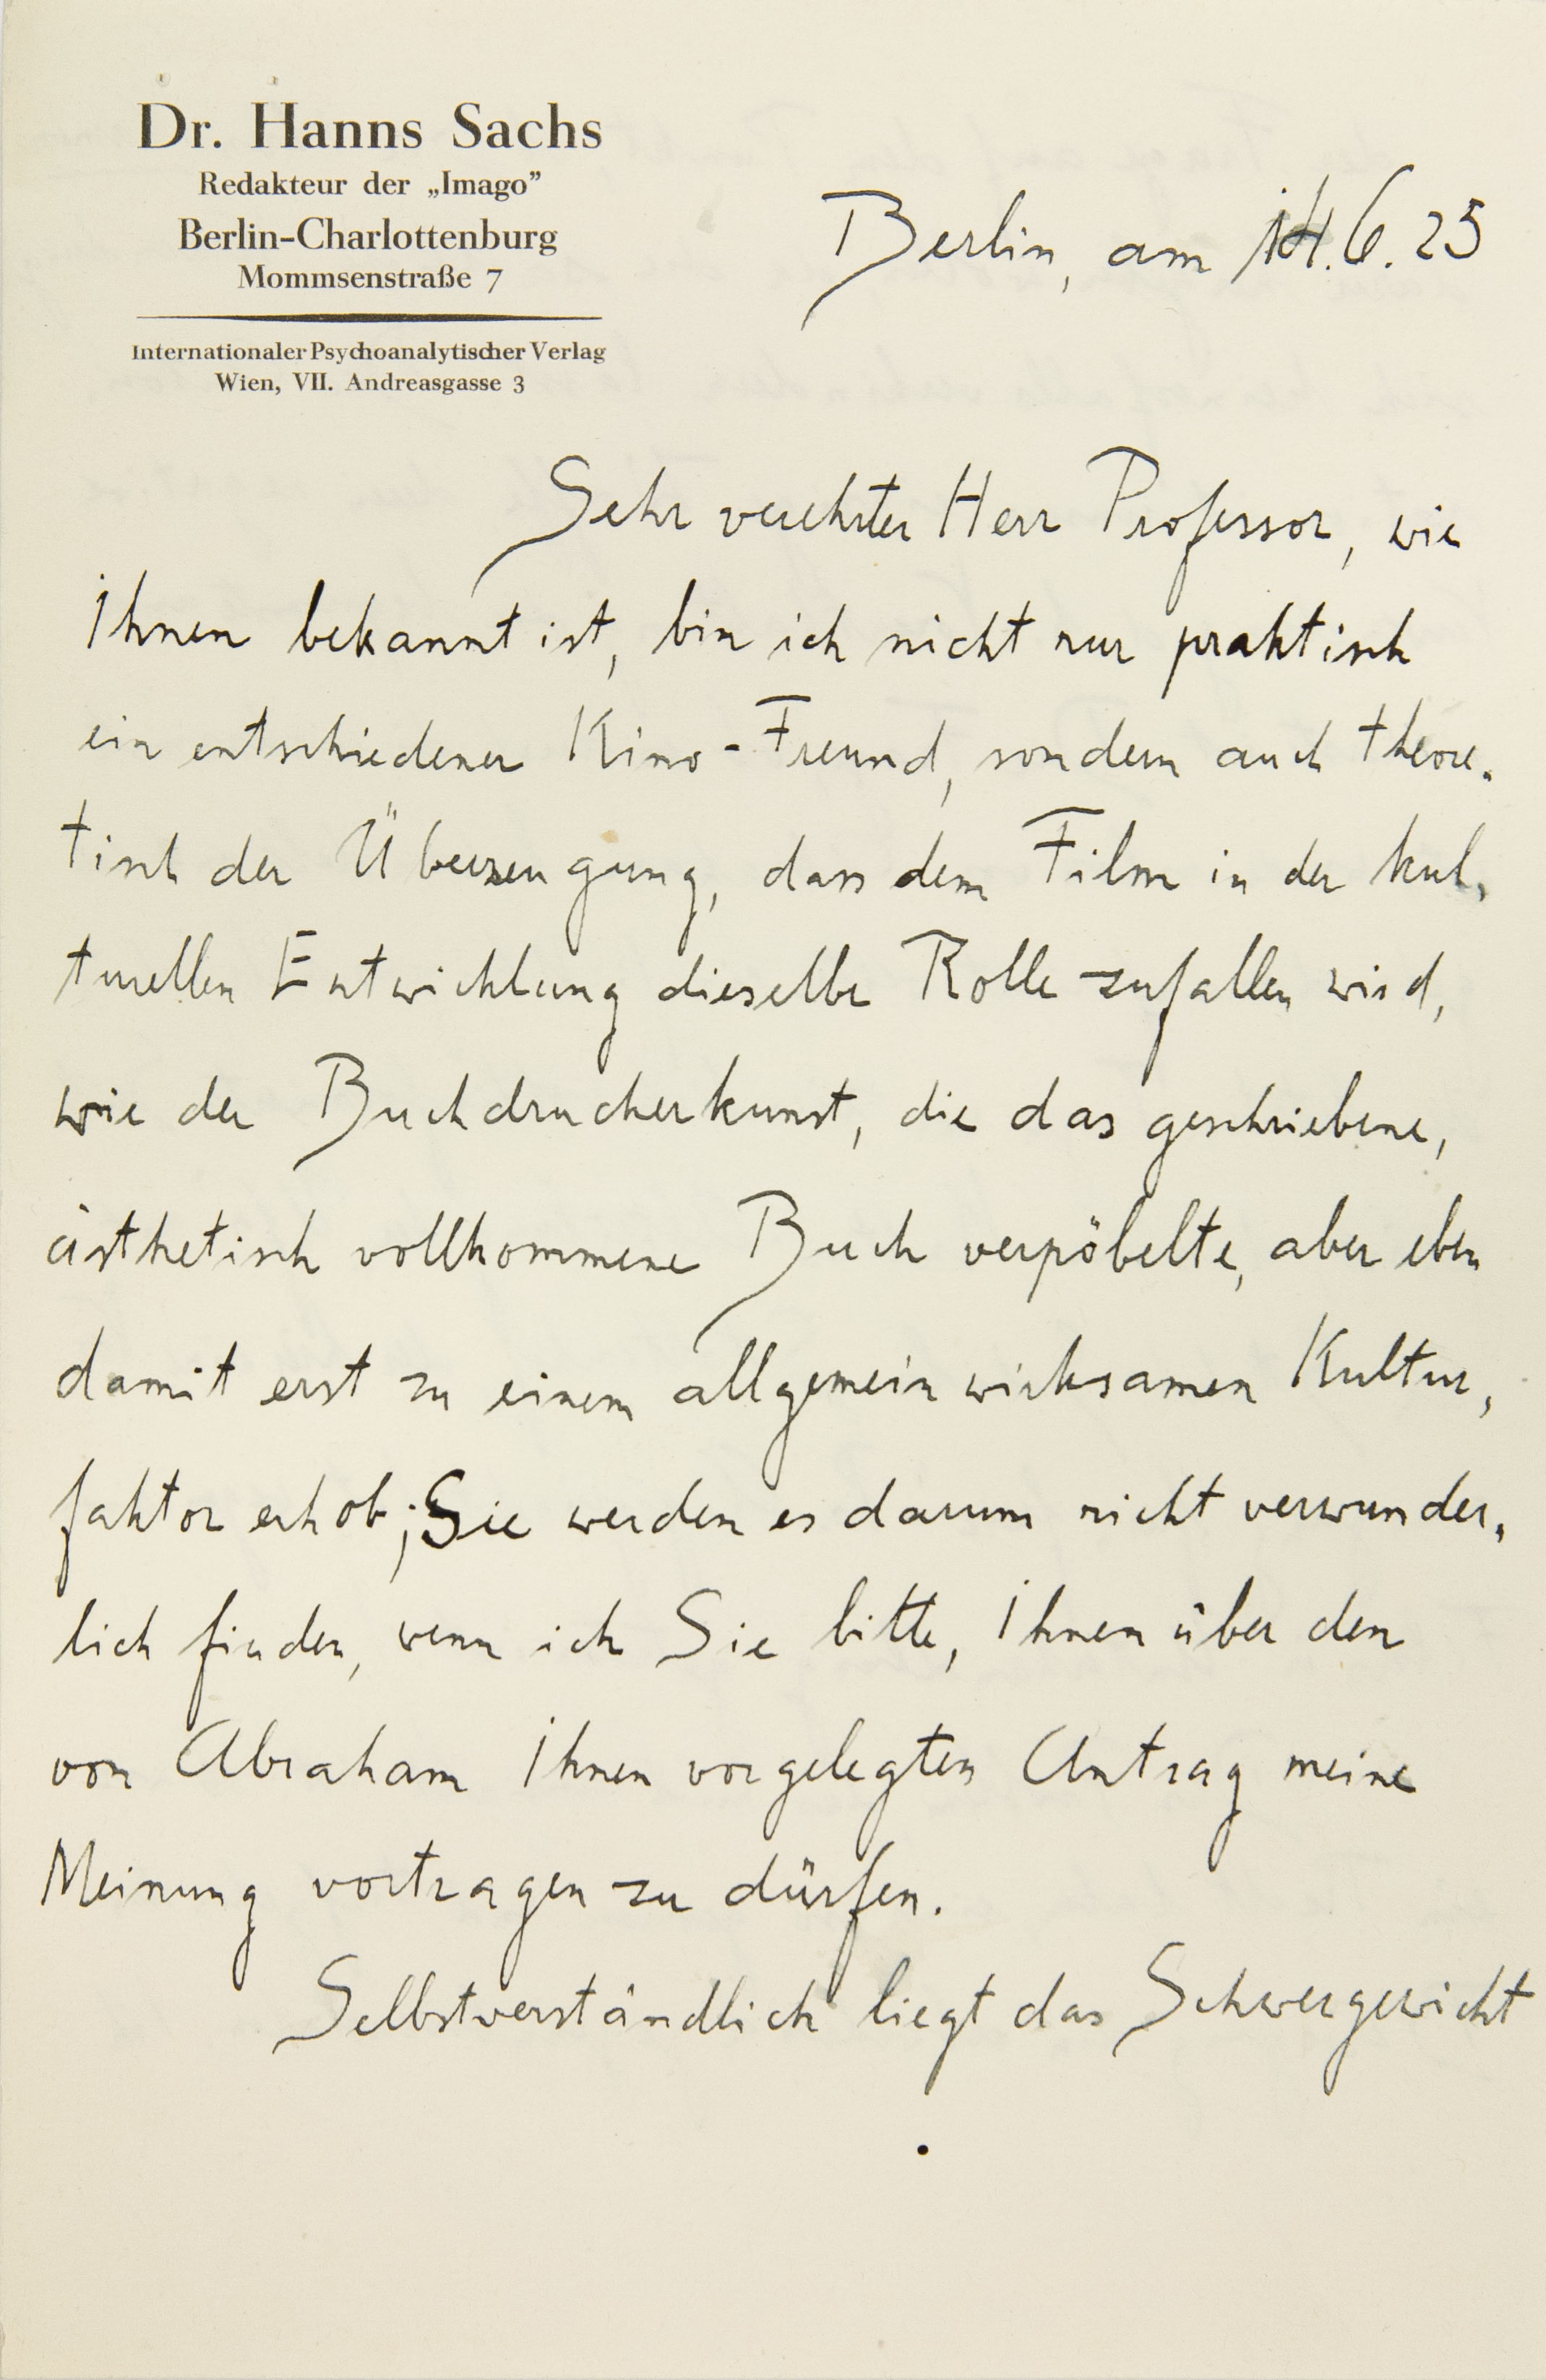 Dr. Hanns Sachs
Redakteur der „Imago”
Berlin-Charlottenburg
Mommsenstraße 7
Internationaler Psychoanalytischer Verlag
Wien, VII. Andreasgasse 3
Berlin, am 14.6.25
Sehr verehrter Herr Professor, wie
Ihnen bekannt ist, bin ich nicht nur praktisch
ein entschiedener Kino-Freund, sondern auch theore-
tisch der Überzeugung, dass dem Film in der kul-
turellen Entwicklung dieselbe Rolle zufallen wird,
wie der Buchdruckerkunst, die das geschriebene,
ästhetisch vollkommene Buch verpöbelte, aber eben
damit erst zu einem allgemein wirksamen Kultur-
faktor erhob; Sie werden es darum nicht verwunder-
lich finden, wenn ich Sie bitte, Ihnen über den
von Abraham Ihnen vorgelegten Antrag meine
Meinung vortragen zu dürfen.
Selbstverständlich liegt das Schwergewicht